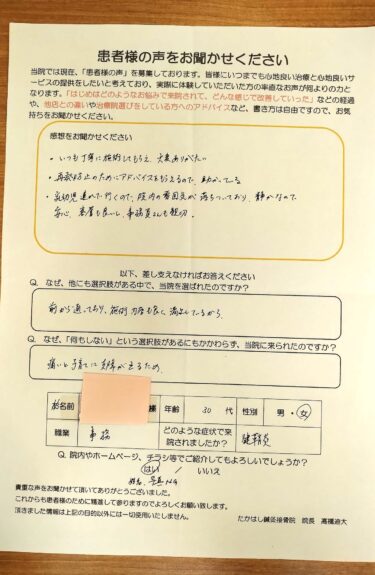 患者様の声をお聞かせください
当院では現在、「患者様の声」を募集しております。皆様にいつまでも心地良い治療と心地良いサ
ービスの提供をしたいと考えており、実際に体験していただいた方の率直なお声が何よりの力と
なります。「はじめはどのようなお悩みで来院されて、どんな感じで改善していった」などの経過
や、他店との違いや治療院選びをしている方へのアドバイスなど、書き方は自由ですので、お気
持ちをお聞かせください。
感想をお聞かせください
・いつも丁寧に施術してもらえ、大変ありがたい
・再発防止のためにアドバイスをもらえるので、助かっている
・乳幼児連れで行くので、院内の雰囲気が落ちついており、静かなので
安心。先生も良いし、事務員さんも親切。
以下、差し支えなければお答えください
Q. なぜ、他にも選択肢がある中で、当院を選ばれたのですか？
前から通っており、施術内容も良く満足しているから。
Q. なぜ、「何もしない」という選択肢があるにもかかわらず、当院に来られたのですか？
痛いと子育てに支障が出るため、
お名前 様 年齢 30代 性別 男・女
職業 事務 どのような症状で来院されましたか？ 腱鞘炎
Q. 院内やホームページ、チラシ等でご紹介してもよろしいでしょうか？
はい / いいえ
姓名、写真NG
貴重な声をお聞かせて頂いてありがとうございました。
これからも患者様のために精進して参りますのでよろしくお願い致します。
頂きました情報は上記の目的以外には一切使用いたしません。
たかはし鍼灸接骨院 院長 髙橋迪大